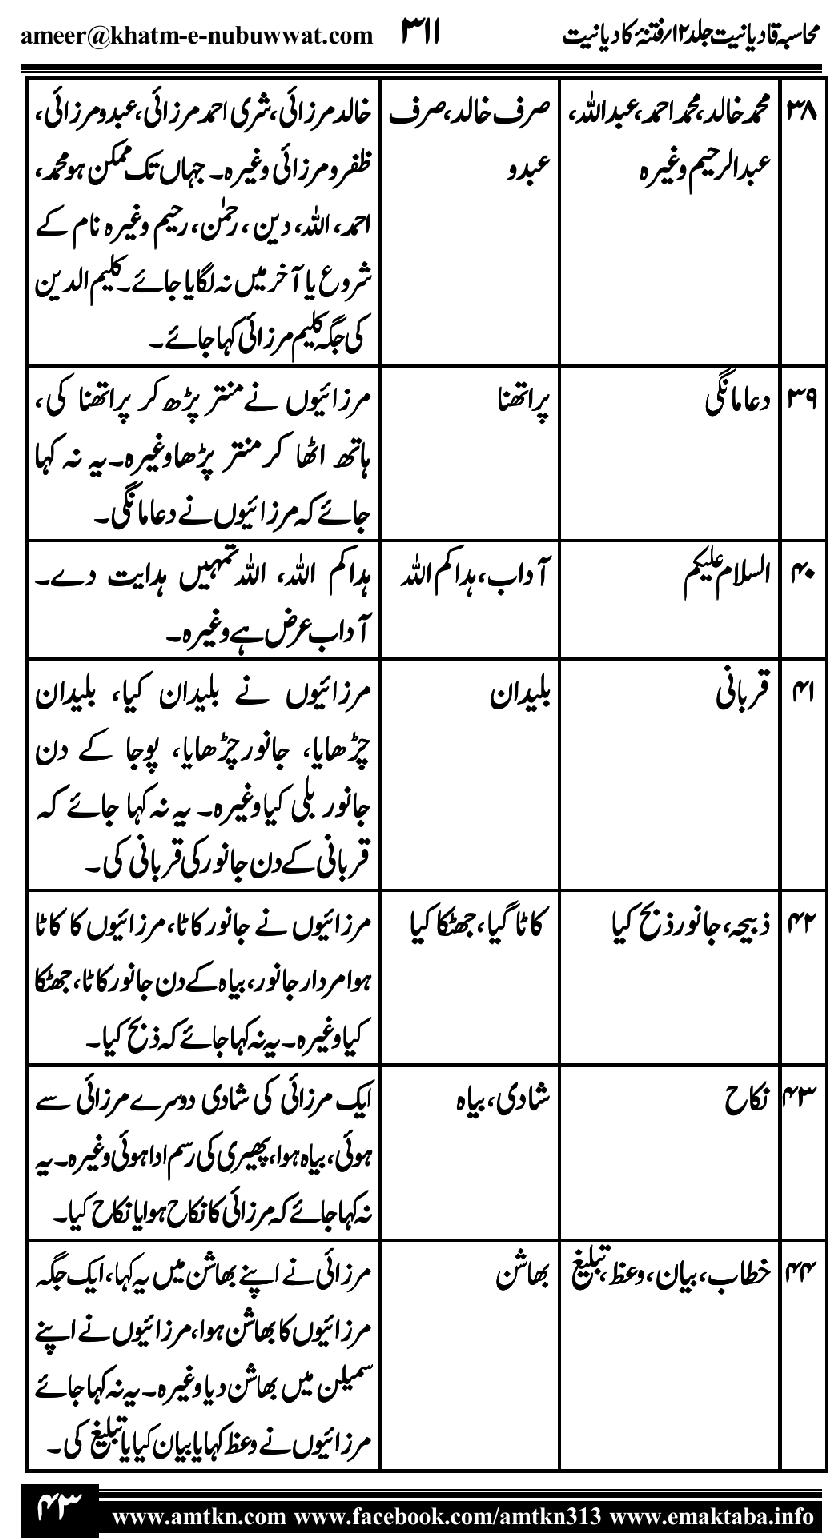 محاسبہ قادیانیت جلد ۱۲/فتنۂ کادیانیت ۳۱۱ ameer@khatm-e-nubuwwat.com
۳۸ محمد خالد، محمد احمد، عبداللہ، صرف خالد، صرف خالد مرزائی، شری احمد مرزائی، عبدو مرزائی،
عبدالرحیم وغیرہ عبدو ظفرو مرزائی وغیرہ۔ جہاں تک ممکن ہو محمد،
احمد، اللہ، دین، رحمٰن، رحیم وغیرہ نام کے
شروع یا آخر میں نہ لگایا جائے۔ کلیم الدین
کی جگہ کلیم مرزائی کہا جائے۔
۳۹ دعا مانگی پراتھنا مرزائیوں نے منتر پڑھ کر پراتھنا کی،
ہاتھ اٹھا کر منتر پڑھا وغیرہ۔ یہ نہ کہا
جائے کہ مرزائیوں نے دعا مانگی۔
۴۰ السلام علیکم آداب، ہداکم اللہ ہداکم اللہ، اللہ تمہیں ہدایت دے۔
آداب عرض ہے وغیرہ۔
۴۱ قربانی بلیدان مرزائیوں نے بلیدان کیا، بلیدان
چڑھایا، جانور چڑھایا، پوجا کے دن
جانور بلی کیا وغیرہ۔ یہ نہ کہا جائے کہ
قربانی کے دن جانور کی قربانی کی۔
۴۲ ذبیحہ، جانور ذبح کیا کاٹا گیا، جھٹکا کیا مرزائیوں نے جانور کاٹا، مرزائیوں کا کاٹا
ہوا مردار جانور، بیاہ کے دن جانور کاٹا، جھٹکا
کیا وغیرہ۔ یہ نہ کہا جائے کہ ذبح کیا۔
۴۳ نکاح شادی، بیاہ ایک مرزائی کی شادی دوسرے مرزائی سے
ہوئی، بیاہ ہوا، پھیری کی رسم ادا ہوئی وغیرہ۔ یہ
نہ کہا جائے کہ مرزائی کا نکاح ہوا یا نکاح کیا۔
۴۴ خطاب، بیان، وعظ، تبلیغ بھاشن مرزائی نے اپنے بھاشن میں یہ کہا، ایک جگہ
مرزائیوں کا بھاشن ہوا، مرزائیوں نے اپنے
سمیلن میں بھاشن دیا وغیرہ۔ یہ نہ کہا جائے
مرزائیوں نے وعظ کہا یا بیان کیا یا تبلیغ کی۔
۴۳ www.amtkn.com www.facebook.com/amtkn313 www.emaktaba.info